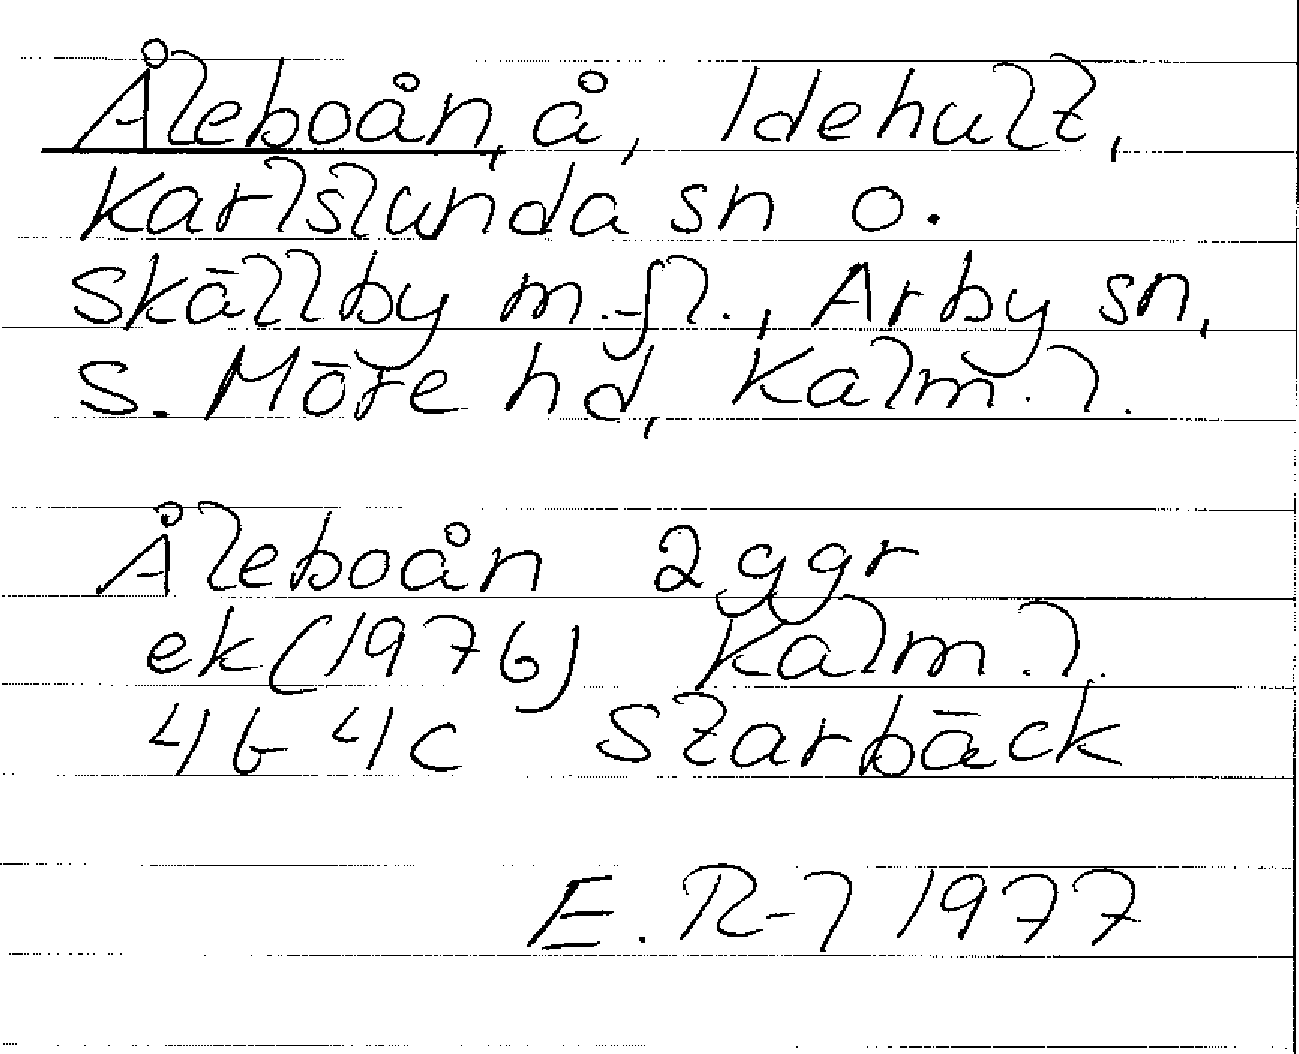 Åleboån, å, Idehult,
Karlslunda sn o.
Skällby m.fl., Arby sn,
S. Möre hd, Kalm. l.
Åleboån 2 ggr
ek (1976) Kalm. l.
4G 4c Starbäck
E. R-l 1977